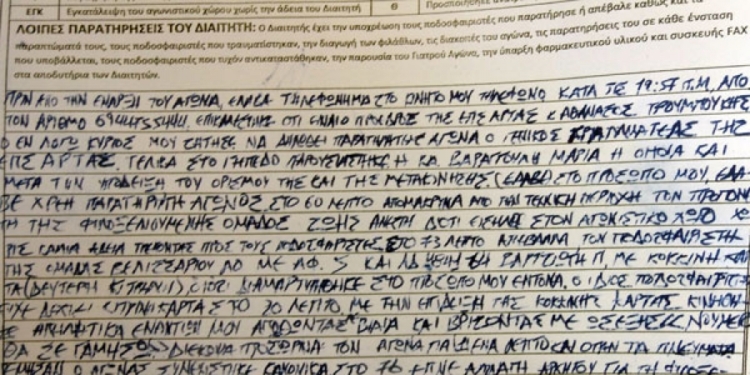 ΕΓΚ Εγκατάλειψη του αγωνιστικού χώρου χωρίς την άδεια του Διαιτητή Θ Προσποιήσεις
ΛΟΙΠΕΣ ΠΑΡΑΤΗΡΗΣΕΙΣ ΤΟΥ ΔΙΑΙΤΗΤΗ: Ο Διαιτητής έχει την υποχρέωση τους ποδοσφαιριστές που παρατήρησε ή απέβαλε καθώς και τα
παραπτώματά τους, τους ποδοσφαιριστές που τραυματίστηκαν, την διαγωγή των φιλάθλων, τις διακοπές του αγώνα, τις παρατηρήσεις του σε κάθε ένσταση
που υποβάλλεται, τους ποδοσφαιριστές που τυχόν αντικαταστάθηκαν, την παρουσία του Γιατρού Αγώνα, την ύπαρξη φαρμακευτικού υλικού και συσκευής FAX
στα αποδυτήρια των Διαιτητών.
ΠΡΙΝ ΑΠΟ ΤΗΝ ΕΝΑΡΞΗ ΤΟΥ ΑΓΩΝΑ, ΕΛΑΒΑ ΤΗΛΕΦΩΝΗΜΑ ΣΤΟ ΚΙΝΗΤΟ ΜΟΥ ΤΗΛΕΦΩΝΟ ΚΑΤΑ ΤΙΣ Π.Μ, ΑΠΟ
ΤΟΝ ΑΡΙΘΜΟ ΟΤΙ ΕΙΝΑΙ Ο ΠΡΟΕΔΡΟΣ ΤΗΣ ΕΠΣ ΑΡΤΑΣ Κ ΑΘΑΝΑΣΙΟΣ
Ο ΕΝ ΛΟΓΩ ΚΥΡΙΟΣ ΜΟΥ ΖΗΤΗΣΕ ΝΑ ΔΗΛΩΘΕΙ ΠΑΡΑΤΗΡΗΤΗΣ ΑΓΩΝΑ Ο ΓΕΝΙΚΟΣ ΓΡΑΜΜΑΤΕΑΣ ΤΗΣ
ΕΠΣ ΑΡΤΑΣ. ΤΕΛΙΚΑ ΣΤΟ ΓΗΠΕΔΟ ΠΑΡΟΥΣΙΑΣΤΗΚΕ Η ΚΑ ΒΑΡΑΤΟΥΛΗ ΜΑΡΙΑ Η ΟΠΟΙΑ ΚΑΙ
ΜΕΤΑ ΤΗΝ ΥΠΟΔΕΙΞΗ ΤΟΥ ΟΡΙΣΜΟΥ ΤΗΣ ΚΑΙ ΤΗΣ ΜΕΤΑΚΙΝΗΣΗΣ ΣΤΟ ΠΡΟΣΩΠΟ ΜΟΥ, ΕΛΑ-
ΒΕ ΧΡΕΗ ΠΑΡΑΤΗΡΗΤΗ ΑΓΩΝΟΣ ΣΤΟ 60 ΛΕΠΤΟ ΑΠΟΜΑΚΡΥΝΑ ΑΠΟ ΤΗΝ ΤΕΧΝΙΚΗ ΠΕΡΙΟΧΗ ΤΟΝ ΠΡΟΠΟΝΗ
ΤΗ ΤΗΣ ΦΙΛΟΞΕΝΟΥΜΕΝΗΣ ΟΜΑΔΟΣ ΔΙΟΤΙ ΕΙΣΗΛΘΕ ΣΤΟΝ ΑΓΩΝΙΣΤΙΚΟ ΧΩΡΟ Χ
ΡΙΣ ΚΑΜΙΑ ΑΔΕΙΑ ΠΡΟΣ ΤΟΥΣ ΠΟΔΟΣΦΑΙΡΙΣΤΕΣ, ΣΤΟ 73 ΛΕΠΤΟ ΑΠΕΒΑΛΑ ΤΟΝ ΠΟΔΟΣΦΑΙΡΙΣΤΗ
ΤΗΣ ΟΜΑΔΑΣ ΒΕΛΙΣΣΑΡΙΟΥ ΜΕ ΑΦ. 5 ΚΑΙ ΜΕ ΚΟΚΚΙΝΗ ΚΑΡ
ΤΑ (ΔΕΥΤΕΡΗ ΚΙΤΡΙΝΗ) ΔΙΟΤΙ ΔΙΑΜΑΡΤΥΡΗΘΗΚΕ ΣΤΟ ΠΡΟΣΩΠΟ ΜΟΥ ΕΝΤΟΝΑ. Ο ΙΔΙΟΣ ΠΟΔΟΣΦΑΙΡΙΣΤΗΣ
ΕΙΧΕ ΔΕΧΘΕΙ ΚΙΤΡΙΝΗ ΚΑΡΤΑ ΣΤΟ ΛΕΠΤΟ, ΜΕ ΤΗΝ ΕΠΙΔΕΙΞΗ ΤΗΣ ΚΟΚΚΙΝΗΣ ΚΑΡΤΑΣ ΚΙΝΗΘΗΚ
Ε ΑΠΕΙΛΗΤΙΚΑ ΕΝΑΝΤΙΟΝ ΜΟΥ ΒΙΑΙΑ ΚΑΙ ΒΡΙΖΟΝΤΑΣ ΜΕ ΩΣ ΕΞΗΣ
ΘΑ ΣΕ ΓΑΜΗΣΩ ΔΙΕΚΟΨΑ ΠΡΟΣΩΡΙΝΑ ΤΟΝ ΑΓΩΝΑ ΓΙΑ ΔΕΚΑ ΛΕΠΤΟ ΚΑΙ ΟΤΑΝ ΤΑ ΠΝΕΥΜΑΤΑ
Ο ΑΓΩΝΑΣ ΣΥΝΕΧΙΣΤΗΚΕ ΚΑΝΟΝΙΚΑ ΣΤΟ 76 ΕΓΙΝΕ ΑΛΛΑΓΗ ΑΡΧΗΓΟΥ ΓΙΑ ΤΗ